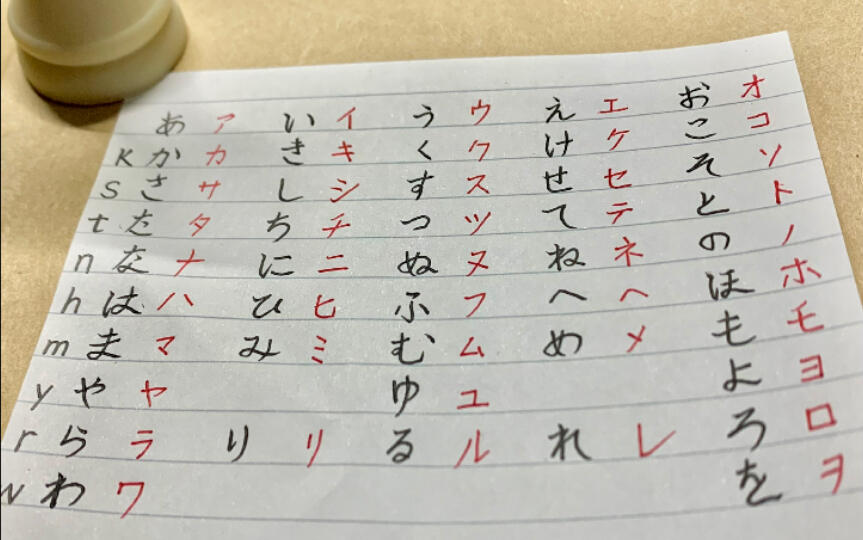 あ ア い イ う ウ え エ お オ
K か カ き キ く ク け ケ こ コ
S さ サ し シ す ス せ セ そ ソ
t た タ ち チ つ ツ て テ と ト
n な ナ に ニ ぬ ヌ ね ネ の ノ
h は ハ ひ ヒ ふ フ へ ヘ ほ ホ
m ま マ み ミ む ム め メ も モ
y や ヤ ゆ ユ よ ヨ
r ら ラ り リ る ル れ レ ろ ロ
w わ ワ を ヲ